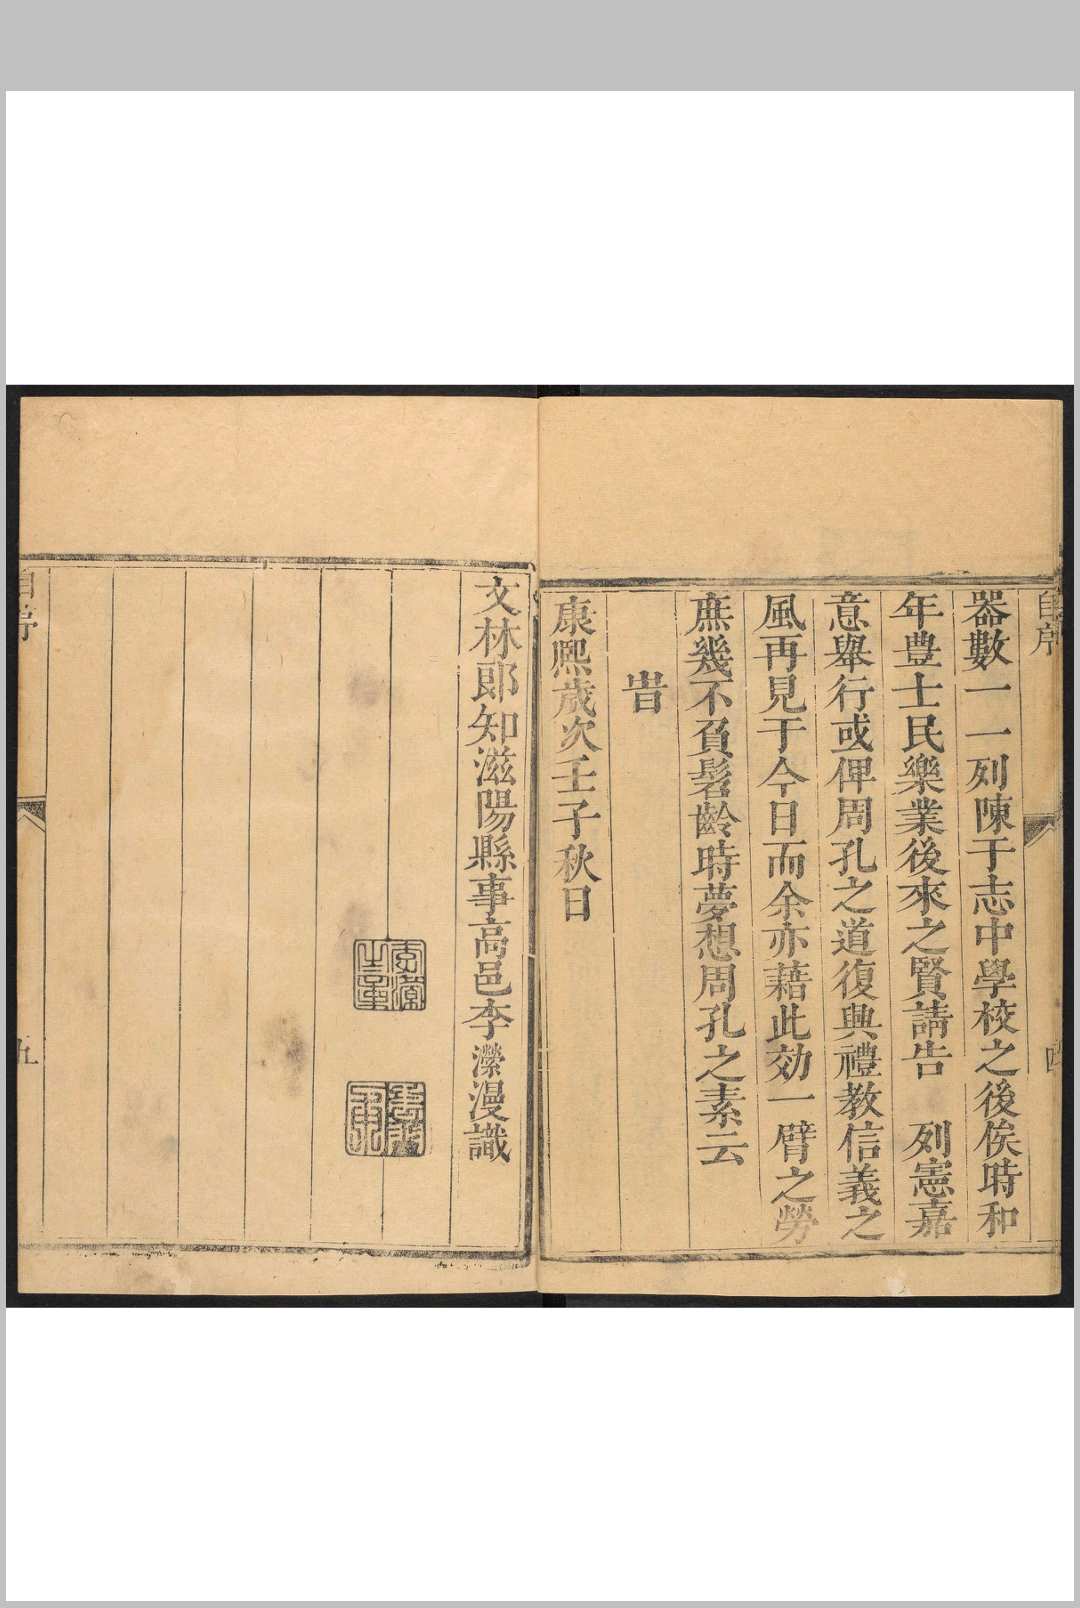 自序
器數一一列陳于志中學校之後俟時和
年豊士民樂業後來之賢請告 列憲嘉
意舉行或俾周孔之道復興禮教信義之
風再見于今日而余亦藉此効一臂之勞
庶幾不負髫齡時夢想周孔之素云
旹
康熙歲次壬子秋日
四
文林郎知滋陽縣事高邑李瀠漫識
自序
五